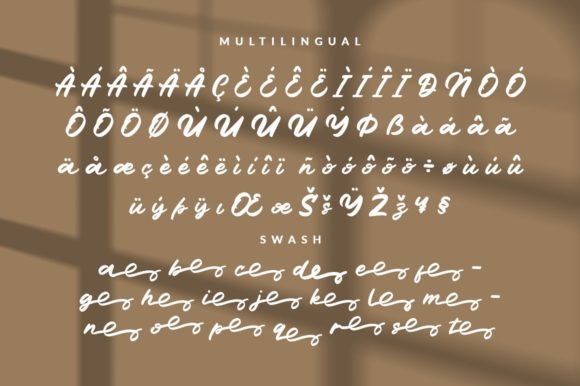 MULTILINGUAL
À Á Â Ã Ä Å Ç È É Ê Ë Ì Í Î Ï Ð Ñ Ò Ó
Ô Õ Ö Ø Ù Ú Û Ü Ý Þ ß à á â ã
ä å æ ç è é ê ë ì í î ï ñ ò ó ô õ ö ÷ ø ù ú û
ü ý þ ÿ ı Œ œ Š š Ÿ Ž ž § 
SWASH
aes bes ces des ees fes -
ges hes ies jes kes les mes -
nes oes pes qes res ses tes